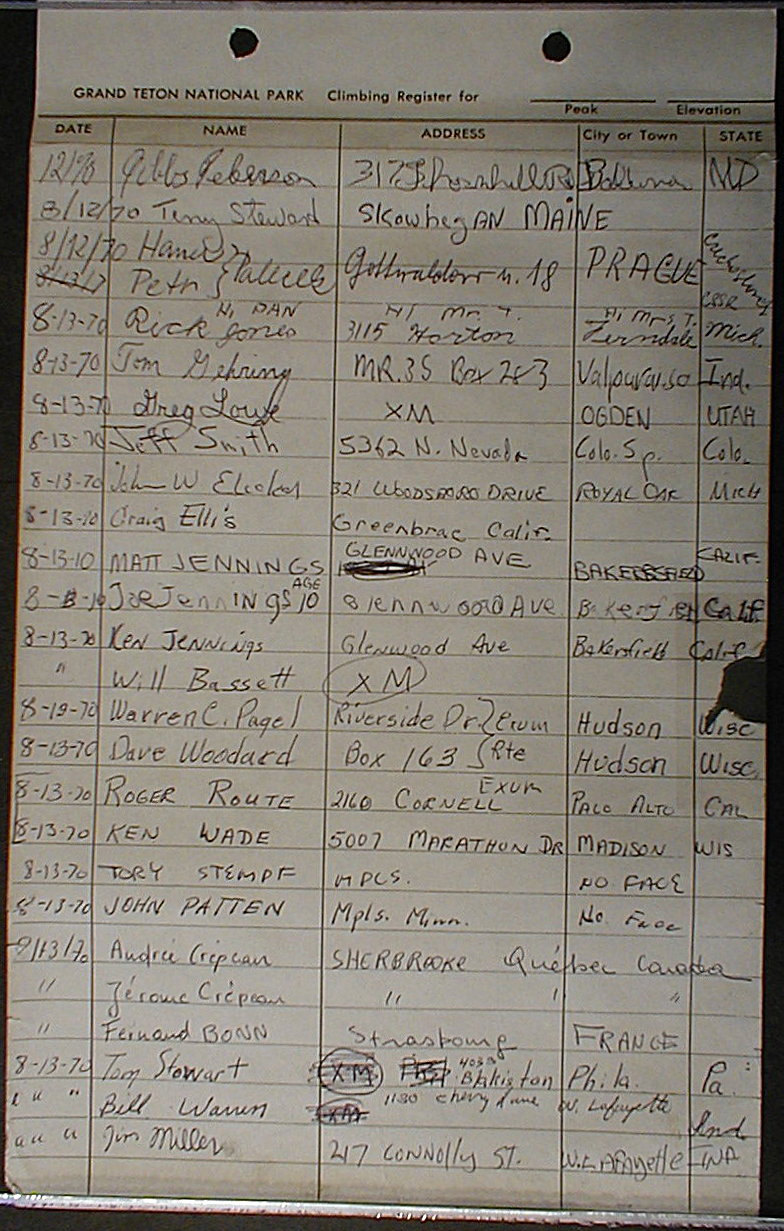 GRAND TETON NATIONAL PARK Climbing Register for
Peak Elevation
DATE NAME ADDRESS City or Town STATE
12/70 317 MD
8/12/70 Terry Steward Skowhegan MAINE
8/12/70
Petr Gottwaldova 18 PRAGUE
CSSR
Hi, DAN Hi Mr. T. Hi Mrs T.
8-13-70 Rick Jones 3115 Horton Ferndale Mich.
8-13-70 Tom Gehring MR.35 Box 283 Valparaiso Ind.
8-13-70 Greg Lowe XM OGDEN UTAH
8-13-70 Jeff Smith 5362 N. Nevada Colo. Sp. Colo.
8-13-70 John W 321 WOODSBORO DRIVE ROYAL OAK MICH
8-13-70 Craig Ellis Greenbrae Calif.
8-13-70 MATT JENNINGS GLENNWOOD AVE BAKERSFIELD CALIF.
8-13-70 Joe Jennings AGE 10 Glennwood Ave Bakersfield Calif.
8-13-70 Ken Jennings Glenwood Ave Bakersfield Calif
" Will Bassett XM
8-13-70 Warren C. Pagel Riverside Dr. } Exum Hudson Wisc
8-13-70 Dave Woodard Box 163 } Rte Hudson Wisc
8-13-70 ROGER ROUTE 2160 CORNELL EXUM PALO ALTO CAL
8-13-70 KEN WADE 5007 MARATHON DR MADISON WIS
8-13-70 TORY STEMPF MPLS. NO FACE
8-13-70 JOHN PATTEN Mpls. Minn. No Face
8/13/70 Andrée Crépeau SHERBROOKE Québec Canada
" Jérome Crépeau " " "
" Fernand BONN Strasbourg FRANCE
8-13-70 Tom Stewart XM 4039 Blakiston Phila. Pa.
" " " Bill Warren 1130 Cherry Lane W. Lafayette Ind.
" " " Jim Miller 217 CONNOLLY ST. W. LAFAYETTE IND